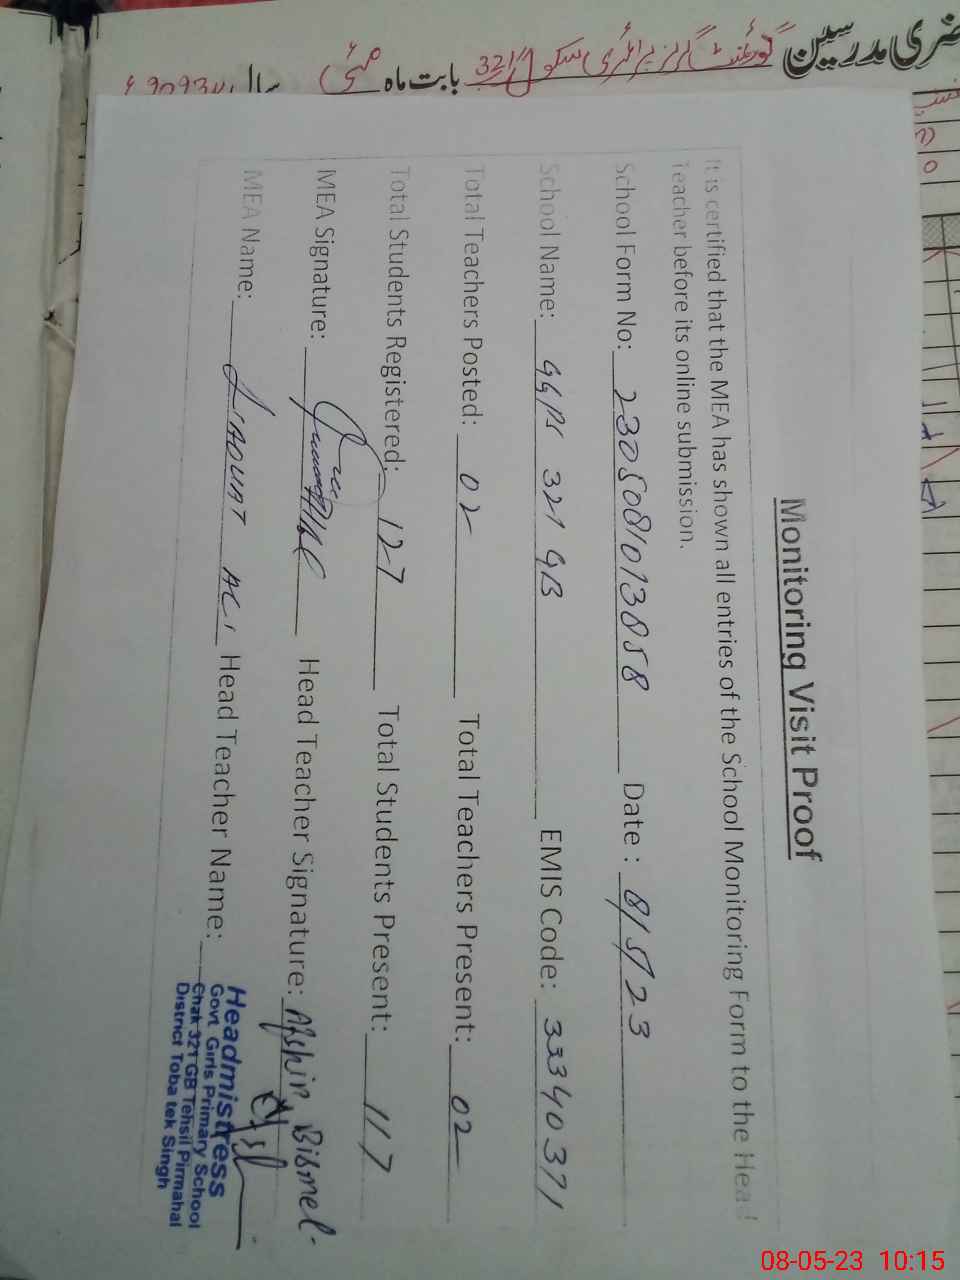 ضری مدرسین گورنمنٹ گرلز پرائمری سکول 321 بابت ماہ مئی
Monitoring Visit Proof
It is certified that the MEA has shown all entries of the School Monitoring Form to the Head
Teacher before its online submission.
School Form No: 2305081013858 Date : 8/5/23
School Name: GGPS 321 GB EMIS Code: 33340371
Total Teachers Posted: 02 Total Teachers Present: 02
Total Students Registered: 127 Total Students Present: 117
MEA Signature: Head Teacher Signature: Afshin Bismel
MEA Name: LIAQUAT ALI Head Teacher Name:
Headmistress
Govt. Girls Primary School
Chak 321 GB Tehsil Pirmahal
District Toba tek Singh
08-05-23 10:15